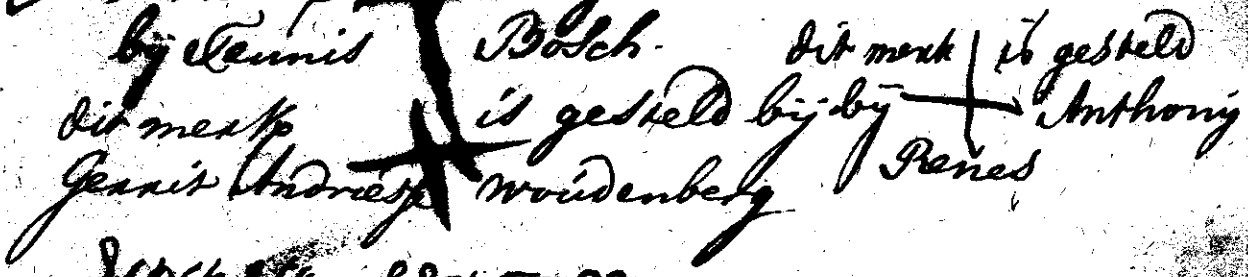 bij Teunis Bosch. dit merk is gesteld
dit merk is gesteld bij bij Anthonij
Gerrit Andriesse Woúdenberg Renes